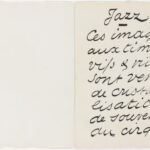 Jazz
Ces imag
aux tim
vifs & vi
sont ven
de crista
lisatio
de souve
du cirq